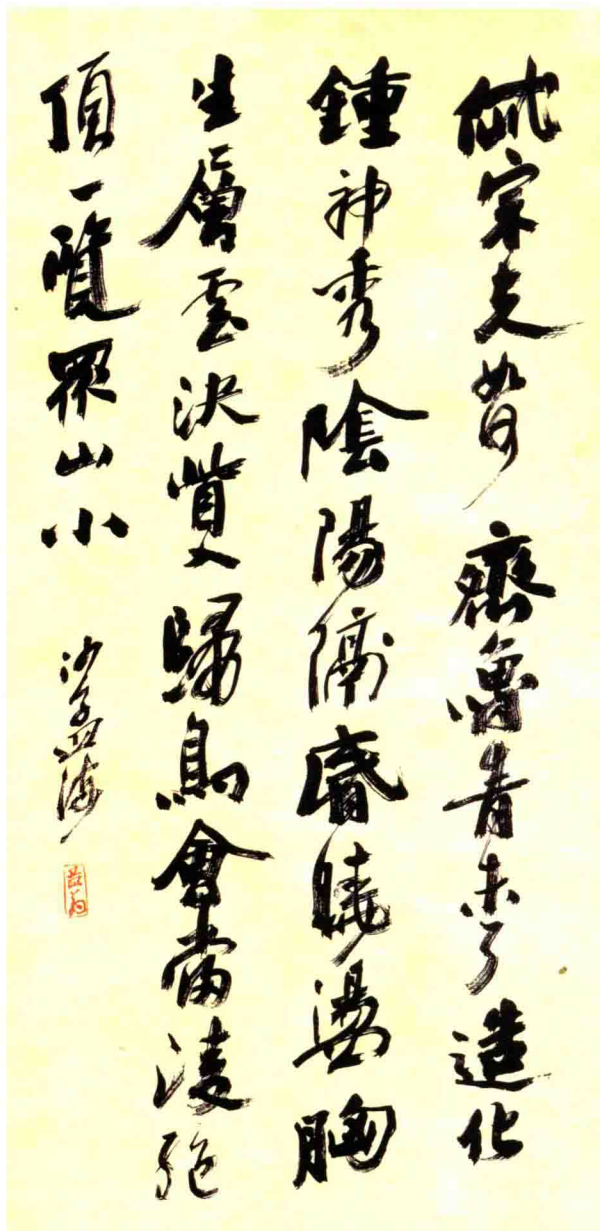 岱宗夫如何齊魯青未了造化
鍾神秀陰陽隔昏曉盪胸
生層雲決眥入歸鳥會當淩絕
頂一覽眾山小
沙孟海